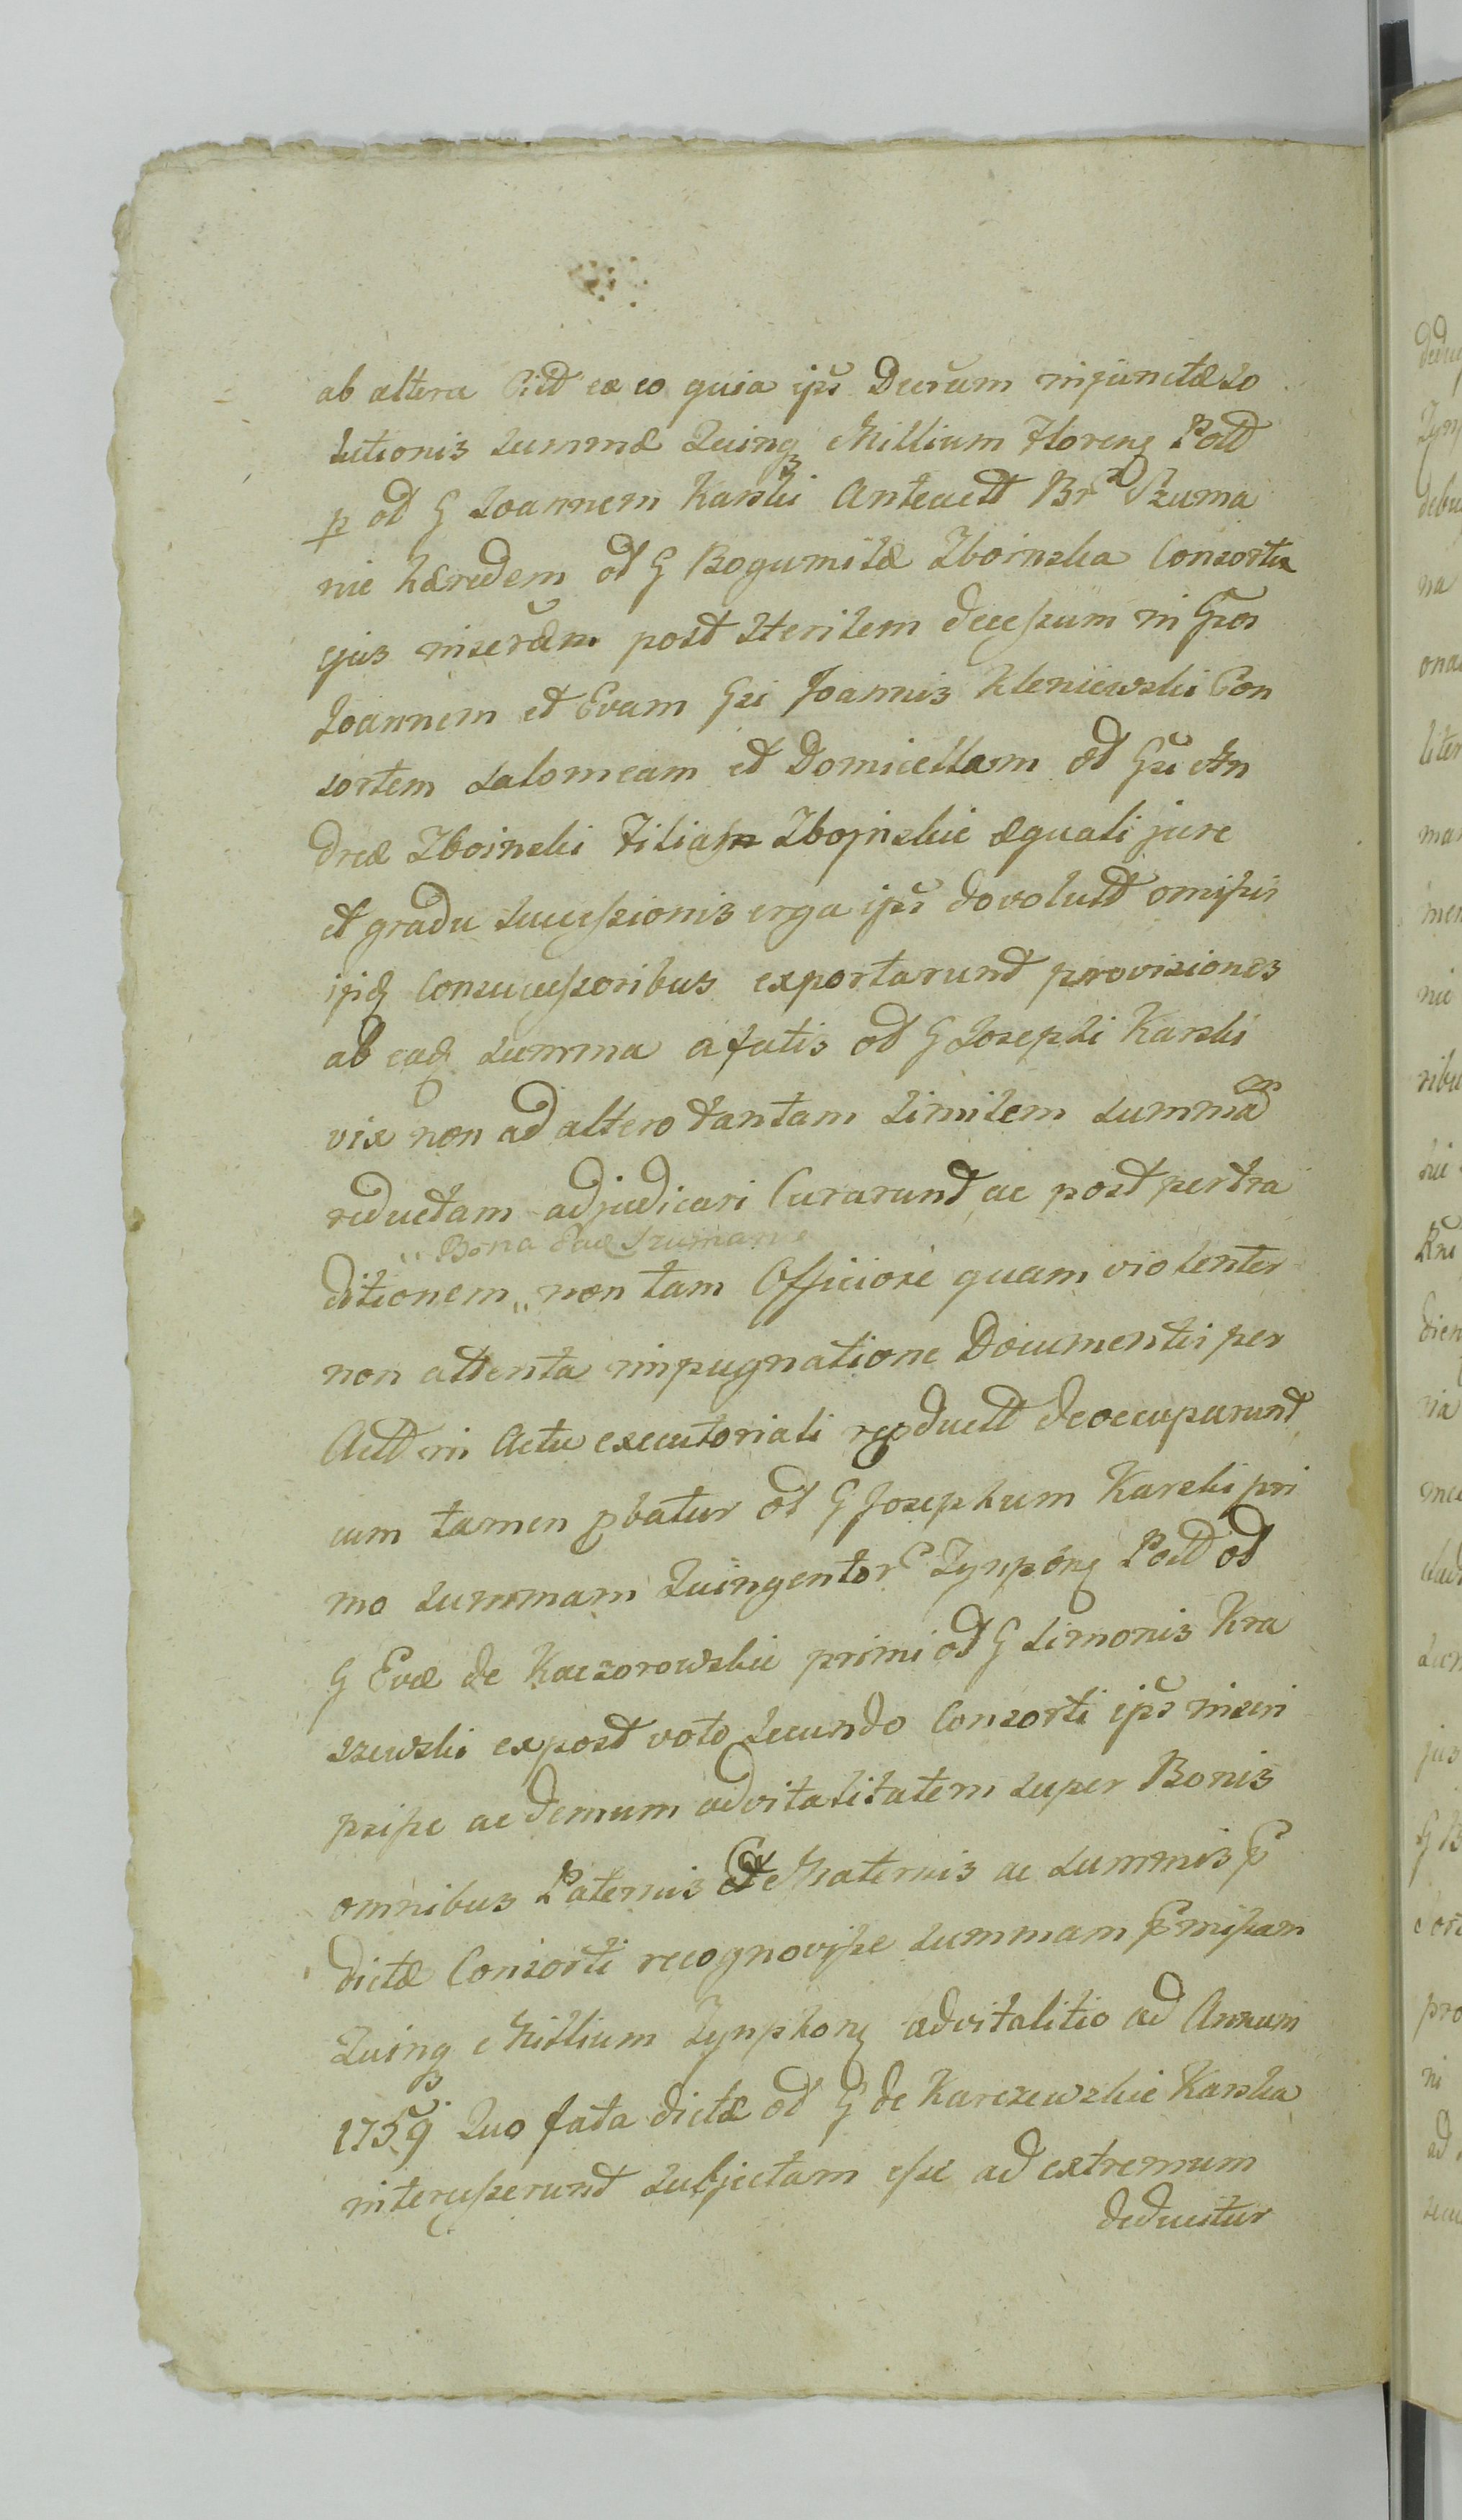 ab altera Citt ex eo quia ips Decrum injunctæ so
lutionis summæ Quinq Millium Floreng Poltt
p od G Joannem Karski Antecett Br Szuma
nie hæredem od G Bogumilæ Zboinska Consorti
ejus inseram post sterilem decessum in Gsos
Joannem et Evam Gsi Joannis Kleniewski Con
sortem Salomeam et Domicellam od Gsi An
dreæ Zboinski Filiam Zbojnskie æquali jure
et gradu successionis erga ips dovolutt omissis
iisq Consuccessoribus exportarunt provisiones
ab eaq summa a fatis od G Josephi Karski
vix non ad altero tantam similem summam
reductam adjudicari Curarunt ac post pertra
„Bona Szumanie
ditionem „ non tam Officiose quam violenter
non attenta impugnatione Documentis per
Actt in Actu executoriali repductt deoccuparunt
cum tamen pbatur od G Josephum Karski pri
mo summam Quingentor Zynphong Poltt od
G Evæ de Kaczorowskie primi od G Simonis Kra
szewski expost voto secundo Consorti ips inscri
psisse ac demum advitalitatem super Bonis
omnibus Paternis et Maternis ac summis p
dictæ Consorti recognovisse summam pmissam
Quinq Millium Zynphong advitalitio ad Annum
1759 Quo fata dictæ od G de Karczewskie Karska
intercesserunt subjectam esse ad extremum
deducitur